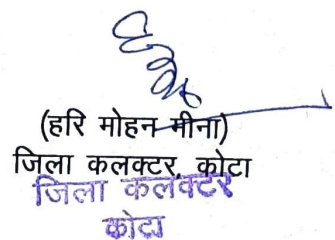 (हरि मोहन मीना)
जिला कलक्टर, कोटा
जिला कलक्टर
कोटा